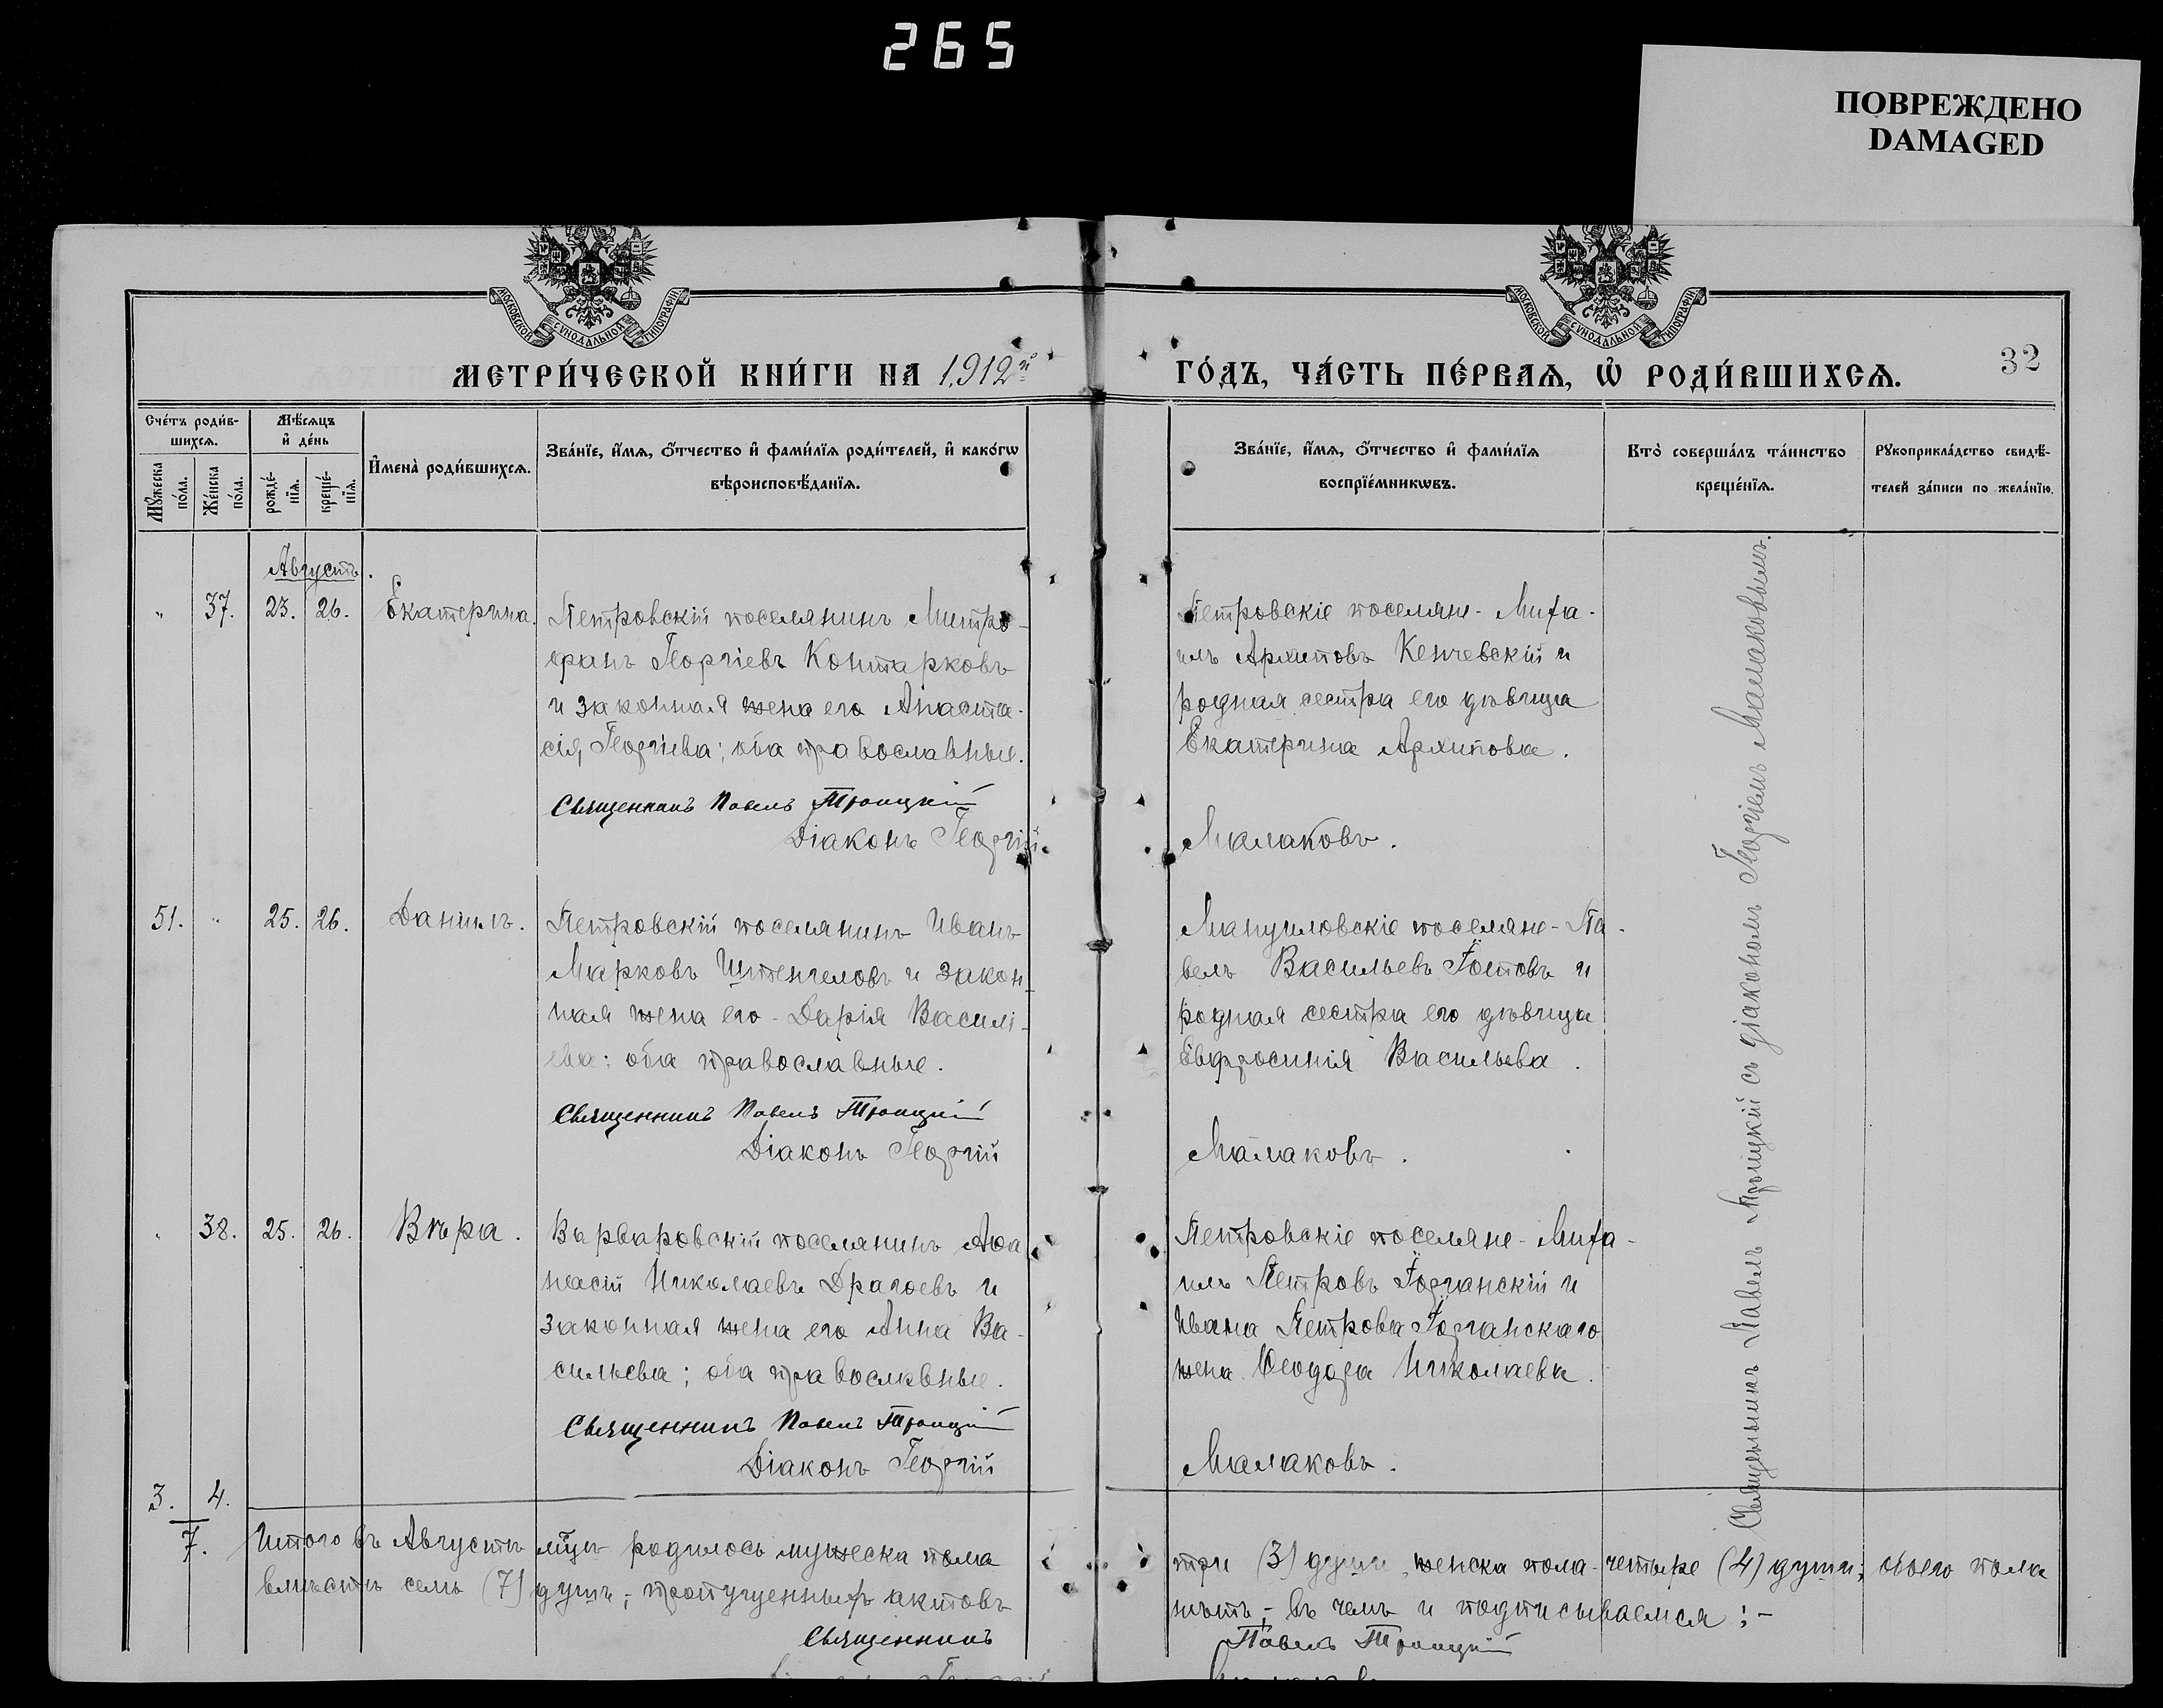 265
ПОВРЕЖДЕНО
DAMAGED
МОСКОВСКОЙ СѴНОДАЛЬНОЙ ТИПОГРАФІИ
МОСКОВСКОЙ СѴНОДАЛЬНОЙ ТИПОГРАФІИ
МЕТРИ́ЧЕСКОЙ КНИ́ГИ НА 1912й
ГО́ДЪ, ЧА́СТЬ ПЕ́РВАѦ, Ѡ҆ РОДИ́ВШИХСѦ.
32
Сче́тъ роди́в-
шихсѧ.
Мꙋ́жеска
по́ла.
Же́нска
по́ла.
Мѣ́сѧцъ
и҆ де́нь
рожде́-
нїѧ.
креще́-
нїѧ.
И҆мена̀ роди́вшихсѧ.
Зва́нїе, и҆́мѧ, ѻ҆́тчество и҆ фами́лїѧ роди́телей, и҆ како́гѡ
вѣроисповѣ́данїѧ.
Зва́нїе, и҆́мѧ, ѻ҆́тчество и҆ фами́лїѧ
воспрїе́мникѡвъ.
Кто̀ соверша́лъ та́инство
креще́нїѧ.
Рꙋкоприкла́дство свидѣ́-
телей за́писи по жела́нїю.
Августъ.
„ 37. 23. 26. Екатерина.
Петровскій поселянинъ Митро-
фанъ Георгіевъ Контарковъ
и законная жена его Анаста-
сія Георгіева; оба православные.
Священникъ Павелъ Троицкій
Діаконъ Георгій
Петровскіе поселяне - Миха-
илъ Архиповъ Кенчевскій и
родная сестра его дѣвица
Екатерина Архипова.
Малаковъ.
51. „ 25. 26. Даніилъ.
Петровскій поселянинъ Иванъ
Марковъ Штенчеловъ и закон-
ная жена его - Дарія Василі-
ева; оба православные.
Священникъ Павелъ Троицкій
Діаконъ Георгій
Мануиловскіе поселяне - Па-
велъ Васильевъ Готовъ и
родная сестра его дѣвица
Евфросинія Васильева.
Малаковъ.
„ 38. 25. 26. Вѣра.
Варваровскій поселянинъ Аѳа
насій Николаевъ Драгоевъ и
законная жена его Анна Ва-
сильева; оба православные.
Священникъ Павелъ Троицкій
Діаконъ Георгій
Петровскіе поселяне - Миха-
илъ Петровъ Горганскій и
Ивана Петрова Горганскаго
жена Ѳеодора Николаева.
Малаковъ.
Священникъ Павелъ Троицкій съ діакономъ Георгіемъ Малаковымъ.
3. 4.
7.
Итого въ Августѣ мцѣ родилось мужеска пола три (3) души, женска пола - четыре (4) души; обоего пола
вмѣстѣ семь (7) душъ; пропущенныхъ актовъ нѣтъ, - въ чемъ и подписываемся: -
Священникъ Павелъ Троицкій